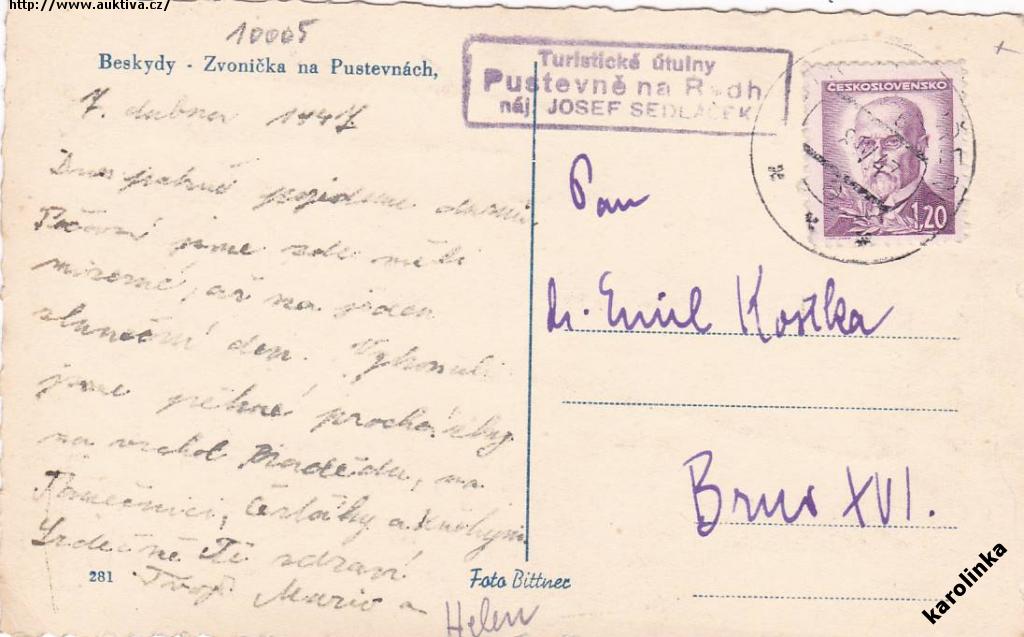 http://www.auktiva.cz/
10005
Beskydy - Zvonička na Pustevnách,
Turistické útulny
Pustevně na R dh
náj. JOSEF SEDLÁČEK
ČESKOSLOVENSKO
1,20
7. dubna 1947
Dnes pojedeme domů.
Počasí jsme zde měli
mizerné, až na jeden
sluneční den. Vykonali
jsme pěkné procházky
na vrchol Radhoště, na
Tanečnici, Čertáky a Kněhyni.
Srdečně Tě zdraví
Tvoji Mario a
Helen
Pan
dr. Emil Kostka
Brno XVI.
281
Foto Bittner
karolinka